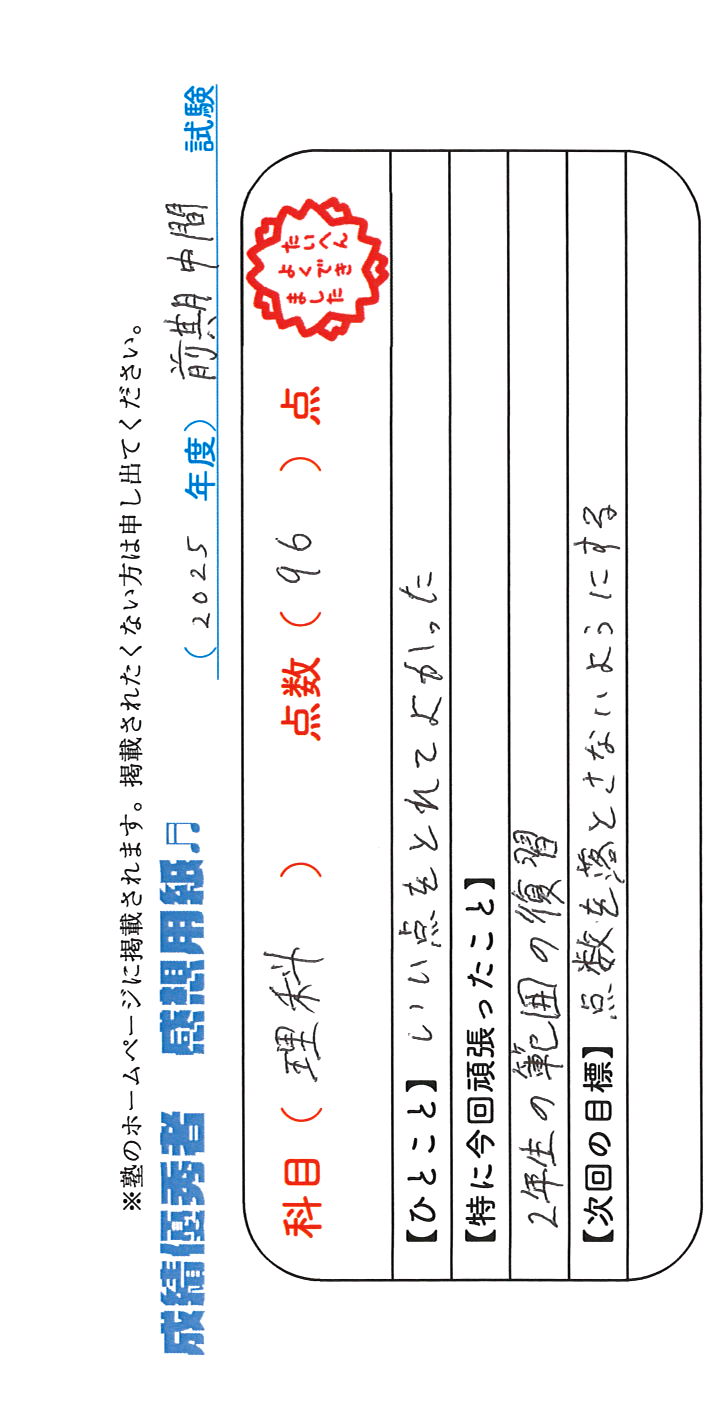 ※塾のホームページに掲載されます。掲載されたくない方は申し出てください。
成績優秀者 感想用紙♬ （2025年度）前期中間 試験
科目（理科） 点数（96）点
たいへん
よくでき
ました
【ひとこと】いい点をとれてよかった
【特に今回頑張ったこと】
2年生の範囲の復習
【次回の目標】点数を落とさないようにする